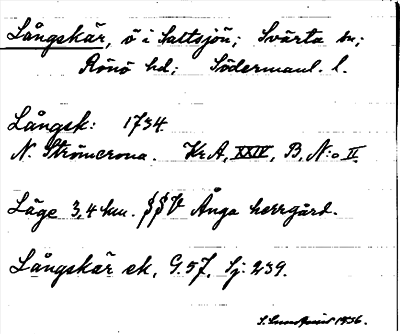 Långskär, ö i Saltsjön; Svärta sn;
Rönö hd; Södermanl. l.
Långsk: 1734.
N. Strömcrona. Kr A, XXIV, B, N:o II.
Läge 3,4 km. SSV Ånga herrgård.
Långskär ek, G.57, Sj. 239.
S. Lundqvist 1936.